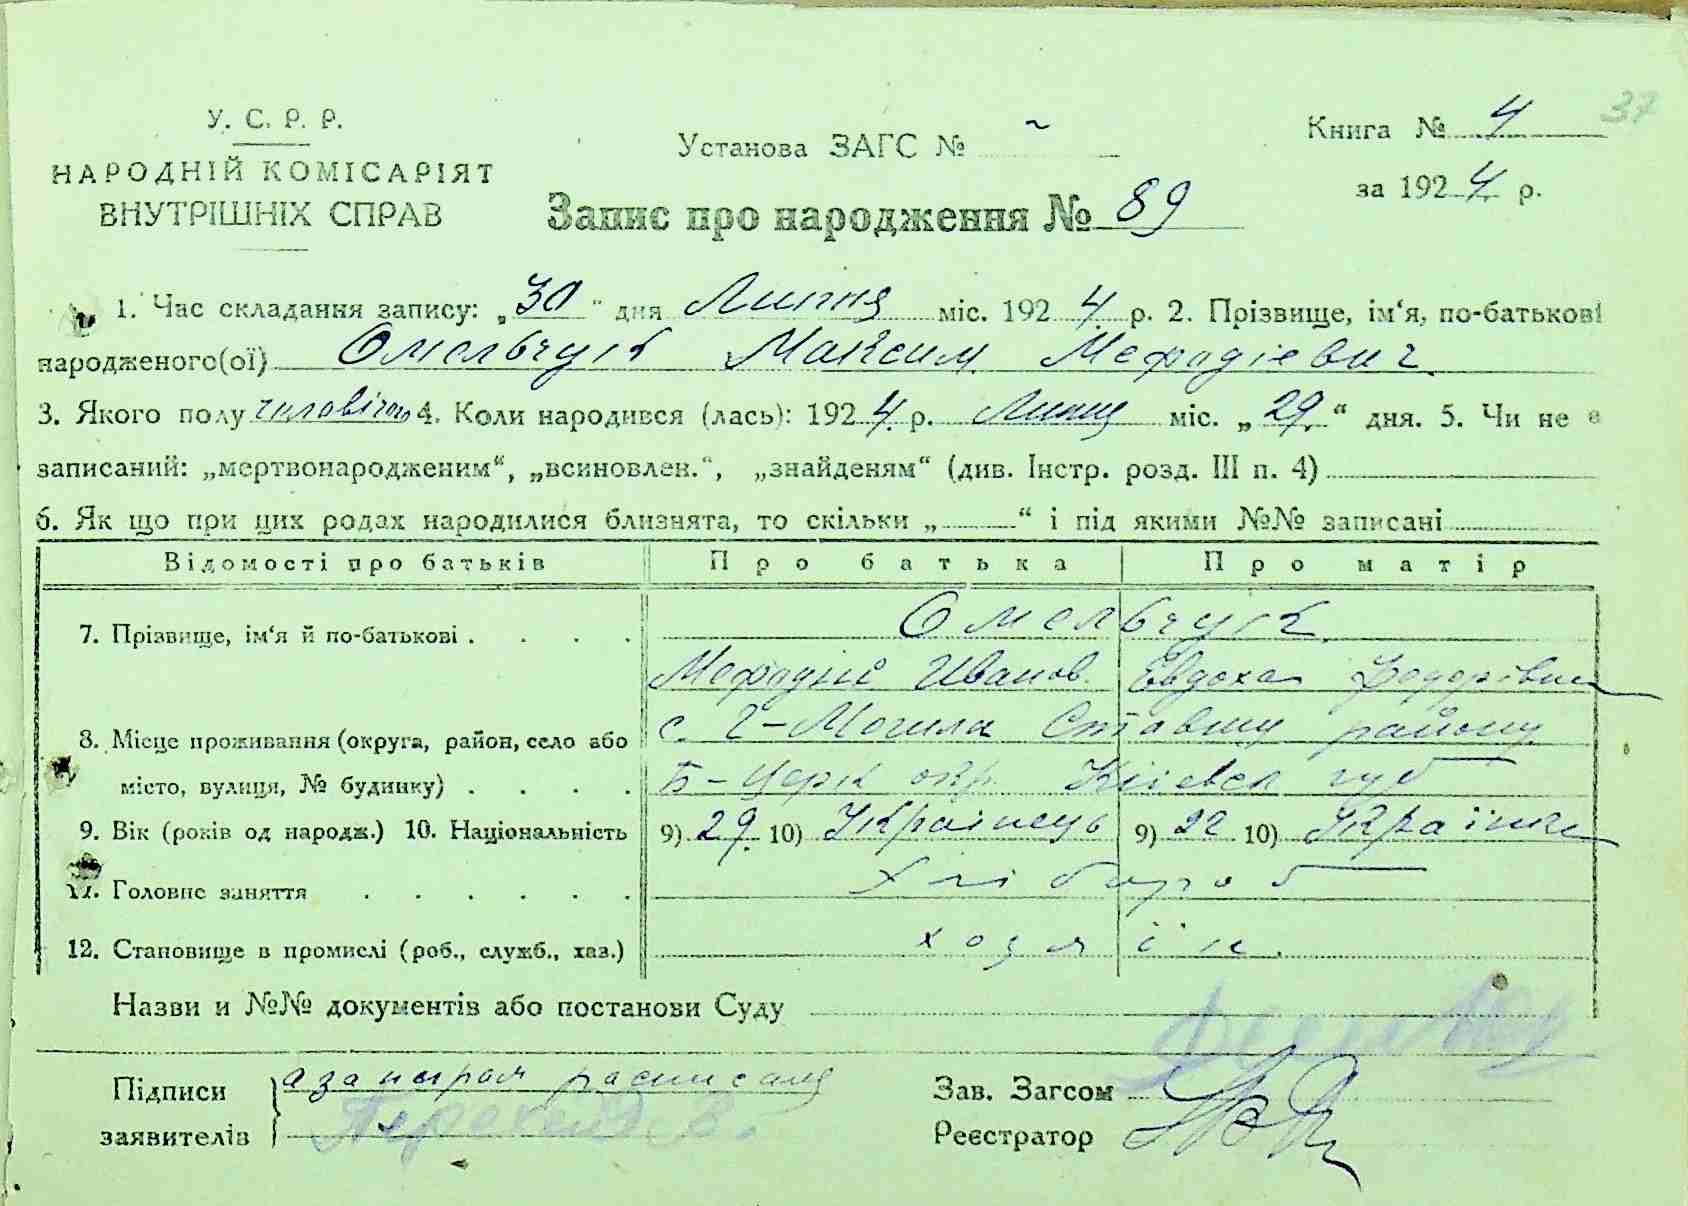 37
У. С. Р. Р.
НАРОДНІЙ КОМІСАРІЯТ
ВНУТРІШНІХ СПРАВ
Установа ЗАГС №
Книга № 4
за 1924 р.
Запис про народження № 89
1. Час складання запису: „30" дня Липня міс. 1924 р. 2. Прізвище, ім'я, по-батькові
народженого(ої) Омельчук Максим Мефодіевич
3. Якого полу чоловічого 4. Коли народився (лась): 1924 р. Липня міс. „29" дня. 5. Чи не є
записаний: „мертвонародженим", „всиновлен.", „знайденям" (див. Інстр. розд. III п. 4)
6. Як що при цих родах народилися близнята, то скільки „ " і під якими №№ записані
Відомості про батьків Про батька Про матір
7. Прізвище, ім'я й по-батькові . . . . Омельчук
Мефодій Иванов Евдоха Федорівна
8. Місце проживання (округа, район, село або с. Г-Могила Ставищ району
місто, вулиця, № будинку) . . . . Б-Церк окр. Київск губ
9. Вік (років од народж.) 10. Національність 9) 29 10) Українець 9) 22 10) Українка
11. Головне заняття . . . . . . Хлібороб
12. Становище в промислі (роб., служб., хаз.) хозяїн.
Назви и №№ документів або постанови Суду
Підписи
заявителів
Зав. Загсом
Реєстратор